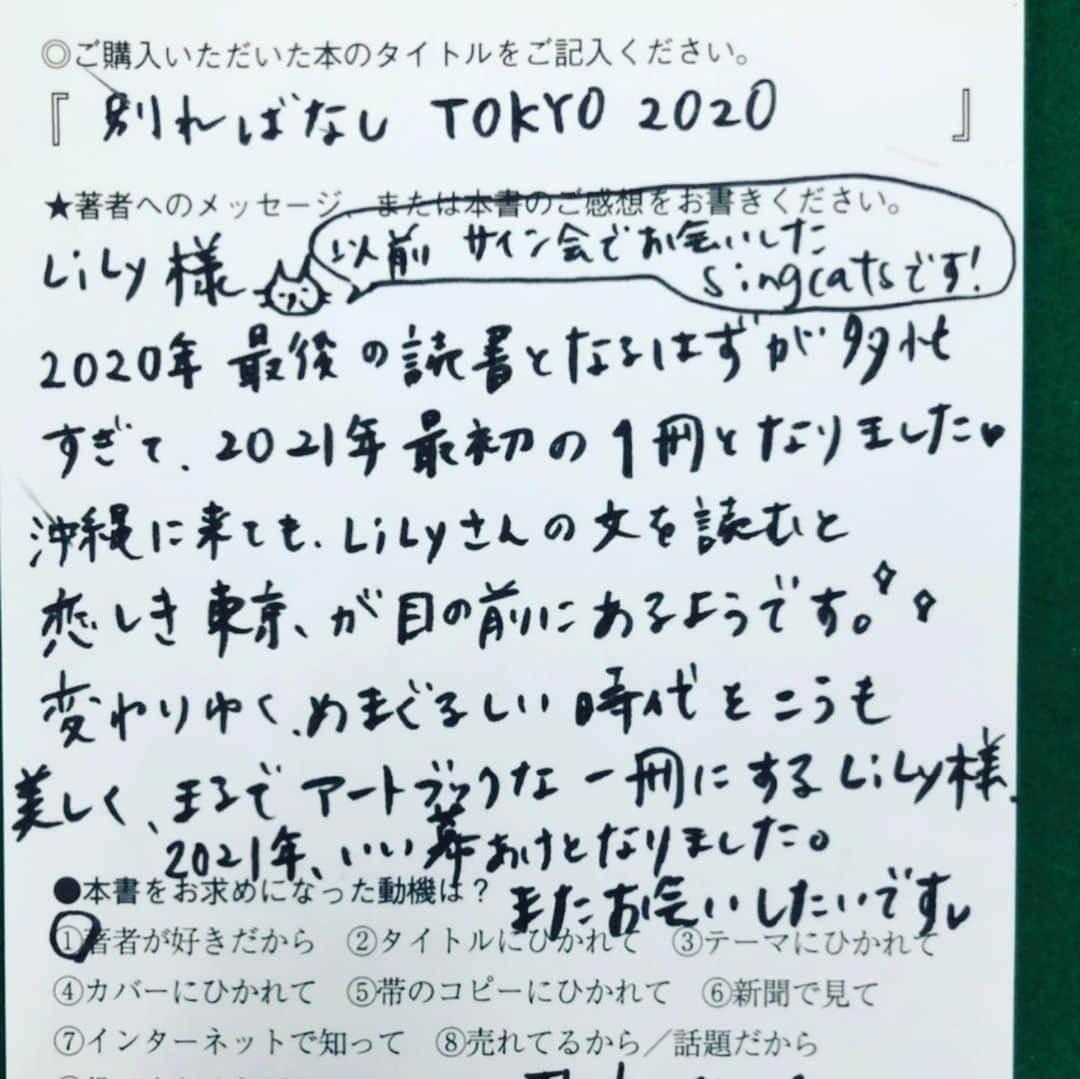 ◎ご購入いただいた本のタイトルをご記入ください。
『別ればなし TOKYO 2020』
★著者へのメッセージ、または本書のご感想をお書きください。
LiLy様
以前 サイン会でお会いした
singcatsです!
2020年 最後の読書となるはずが多忙
すぎて、2021年 最初の1冊となりました♥
沖縄に来ても、LiLyさんの文を読むと
恋しき東京、が目の前にあるようです。
変わりゆく、めまぐるしい時代をこうも
美しく、まるでアートブックな一冊にするLiLy様、
2021年、いい幕あけとなりました。
またお会いしたいです。
●本書をお求めになった動機は?
①著者が好きだから ②タイトルにひかれて ③テーマにひかれて
④カバーにひかれて ⑤帯のコピーにひかれて ⑥新聞で見て
⑦インターネットで知って ⑧売れてるから/話題だから